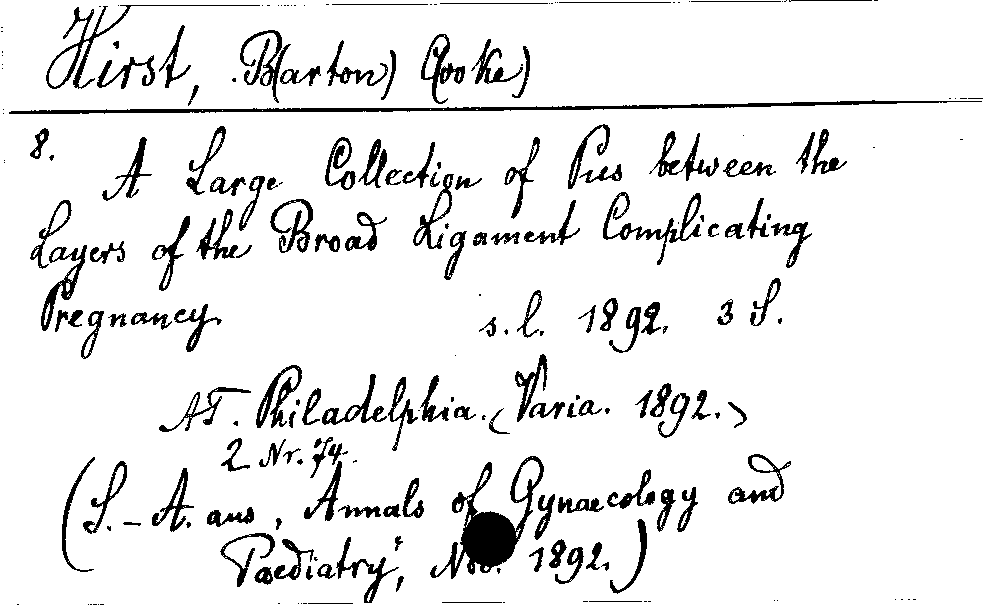 Hirst, B(arton) C(ooke)
8.
A Large Collection of Pus between the
Layers of the Broad Ligament Complicating
Pregnancy.
s. l. 1892. 3 S.
AT. Philadelphia. (Varia. 1892.)
2 Nr. 74.
(S.-A. aus „Annals of Gynaecology and
Paediatry“, Nov. 1892.)